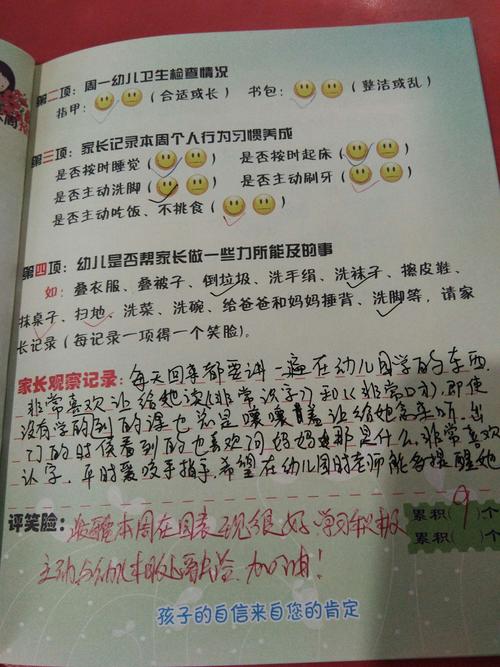 第二项：周一幼儿卫生检查情况
指甲：（合适或长） 书包：（整洁或乱）
第三项：家长记录本周个人行为习惯养成
是否按时睡觉（ ） 是否按时起床（ ）
是否主动洗脚（ ） 是否主动刷牙（ ）
是否主动吃饭、不挑食（ ）
第四项：幼儿是否帮家长做一些力所能及的事
如：叠衣服、叠被子、倒垃圾、洗手绢、洗袜子、擦皮鞋、
抹桌子、扫地、洗菜、洗碗、给爸爸和妈妈捶背、洗脚等，请家
长记录（每记录一项得一个笑脸）。
家长观察记录：每天回来都要讲一遍在幼儿园学的东西
非常喜欢让给她读《非常识字》和《非常口才》，即使
没有学的到的课也总是嚷嚷着让给她读来听，出
门的时候看到的也喜欢问妈妈那是什么，非常喜欢
认字，平时爱咬手指，希望在幼儿园时老师能多提醒她
评笑脸：本周在园表现很好，学习积极
累积（9）个
累积（ ）个
主动 加油！
孩子的自信来自您的肯定